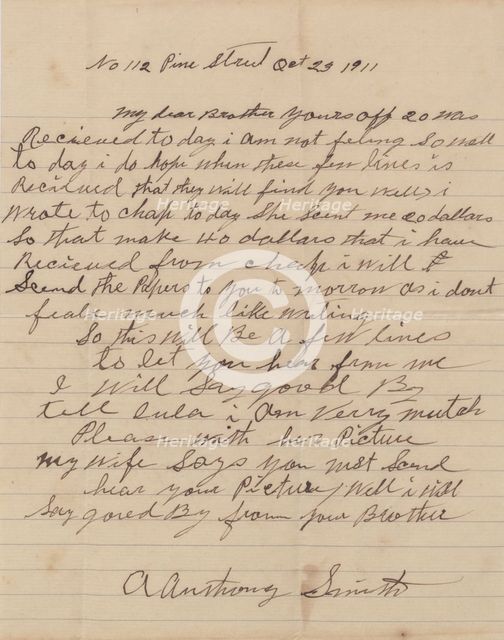 No 112 Pine Street Oct 23 1911
My dear Brother yours off 20 was
Recieved to day i am not feling So well
to day i do hope when these few lines is
Recieved that they will find you well i
wrote to chap to day She Scent me 20 dollars
So that make 40 dollars that i have
Recieved from chap i will
Scend the Papers to you to morrow as i dont
feal much like writing
So this will Be a few lines
to let you hear from me
I will Say good By
tell lula i am verry mutch
Please with her Picture
My wife Says you mst Scend
hear your Picture Well i will
Say gored By from your Brother
A Anthony Smith
Heritage Heritage
Heritage Heritage
Heritage Heritage
Heritage Heritage